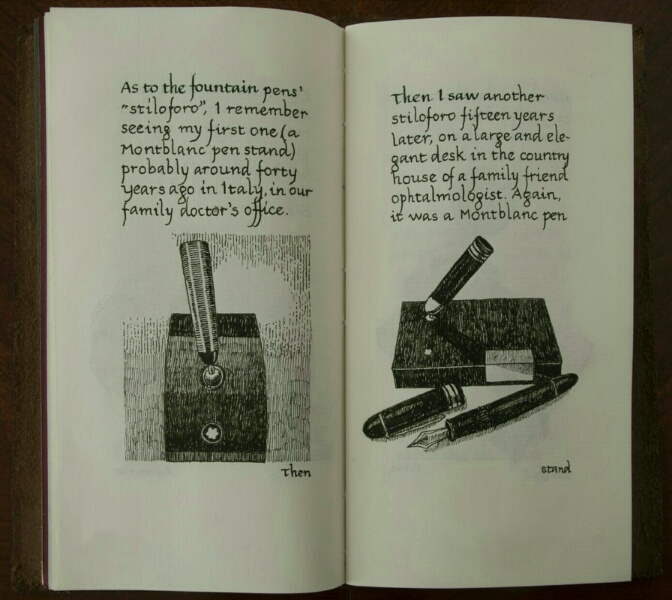 As to the fountain pens'
"stiloforo", I remember
seeing my first one (a
Montblanc pen stand)
probably around forty
years ago in Italy, in our
family doctor's office.
Then
Then I saw another
stiloforo fifteen years
later, on a large and ele-
gant desk in the country
house of a family friend
ophtalmologist. Again,
it was a Montblanc pen
stand